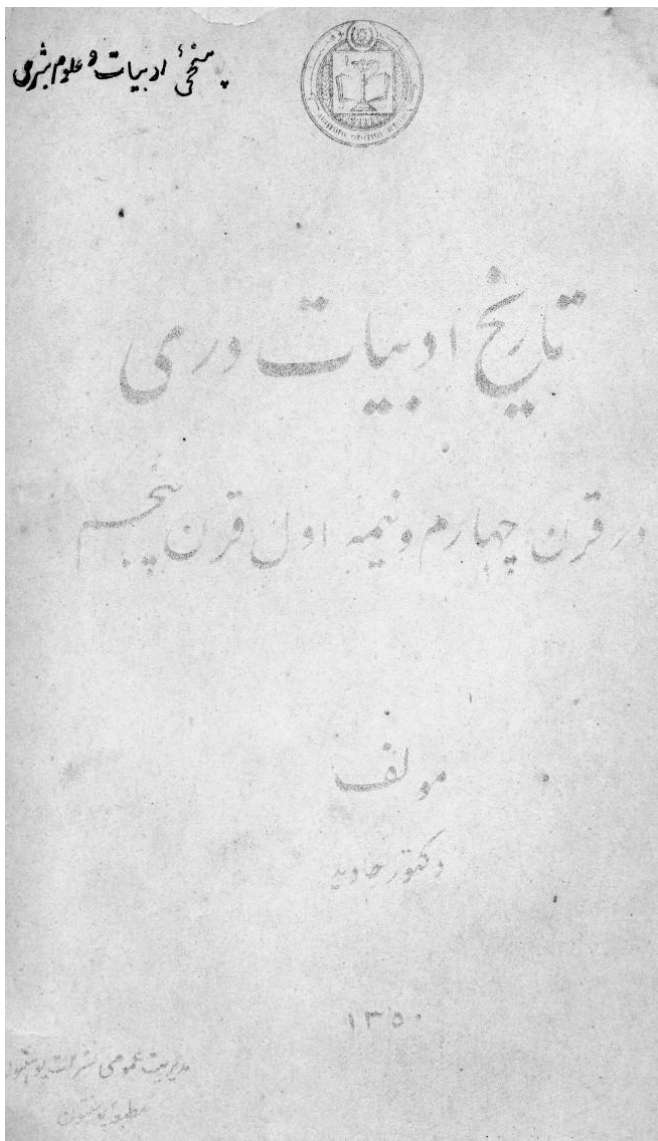 پوهنځی ادبیات و علوم بشری
تاریخ ادبیات دری
در قرن چهارم و نیمه اول قرن پنجم
مولف
دکتور جاوید
۱۳۵۰
مدیریت عمومی نشرات پوهنتون
مطبعه پوهنتون